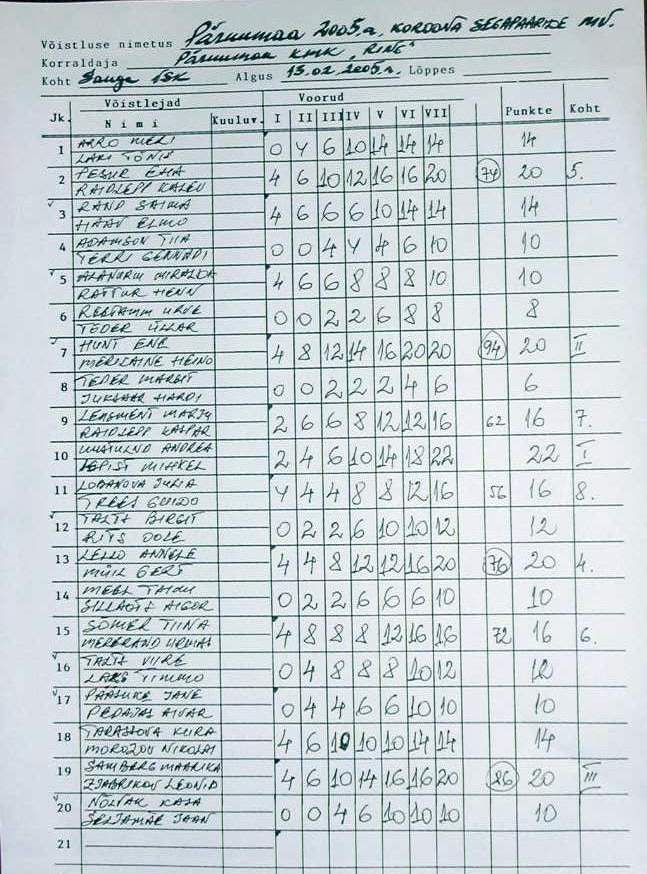 Võistluse nimetus Pärnumaa 2005.a. KOROONA SEGAPAARIDE MV.
Korraldaja Pärnumaa KMK "RING"
Koht Sauga ISK Algus 13.02.2005.a. Lõppes
Võistlejad Voorud
Jk. Nimi Kuuluv. I II III IV V VI VII Punkte Koht
1 ARRO MELI 0 4 6 10 14 14 14 14
LAKI TÕNIS
2 PESUR EHA 4 6 10 12 16 16 20 74 20 5.
RAIDLEPP KALEV
3 RAND SAIMA 4 6 6 6 10 14 14 14
HAAV ELMO
4 ADAMSON TIIA 0 0 4 4 4 6 10 10
TERRI GENNADI
5 ALANURM MIRALDA 4 6 6 8 8 8 10 10
RATTUR HENN
6 REBTAMM URVE 0 0 2 2 6 8 8 8
TEDER ÜLLAR
7 HUNT ENE 4 8 12 14 16 20 20 94 20 II
MERILAINE HEINO
8 TEDER MARGIT 0 0 2 2 2 4 6 6
JUKSAAR HARDI
9 LEASMENT MARJU 2 6 6 8 12 12 16 62 16 7.
RAIDLEPP KASPAR
10 ANDREA 2 4 6 10 14 18 22 22 I
LEPIST MIHKEL
11 LOBANOVA JULIA 4 4 4 8 8 12 16 56 16 8.
TREES GUIDO
12 TALTS BIRGIT 0 2 2 6 10 10 12 12
RITS
13 LELLO ANNELE 4 4 8 12 12 16 20 76 20 4.
MÜIL GERT
14 MEEL TAIMI 0 2 2 6 6 6 10 10
SILLAOTS AIGOR
15 SÕMER TIINA 4 8 8 8 12 16 16 72 16 6.
MEREBRAND URMAS
16 TALTS VIIRE 0 4 8 8 8 10 12 12
LAKS TIMMO
17 PAASUKE JANE 0 4 4 6 6 10 10 10
PEDAJAS AIVAR
18 TARASSOVA KIIRA 4 6 10 10 10 14 14 14
MOROZOV NIKOLAI
19 SAMBERG MAARIKA 4 6 10 14 16 16 20 86 20 III
ZJABRIKOV LEONID
20 NÕLVAK KAJA 0 0 4 6 10 10 10 10
SELJAMÄE JAAN
21